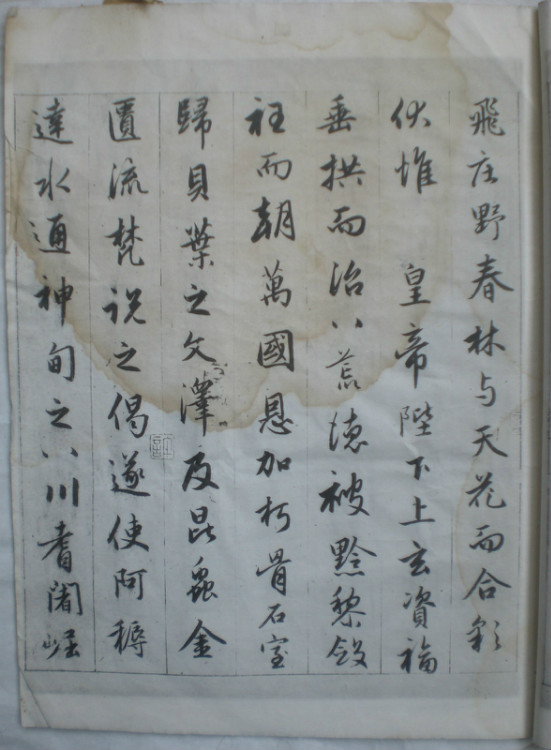 飛庄野春林与天花而合彩
伏惟 皇帝陛下上玄資福
垂拱而治八荒德被黔黎斂
衽而朝萬國恩加朽骨石室
歸貝葉之文澤及昆蟲金
匱流梵說之偈遂使阿耨
達水通神甸之八川耆闍崛